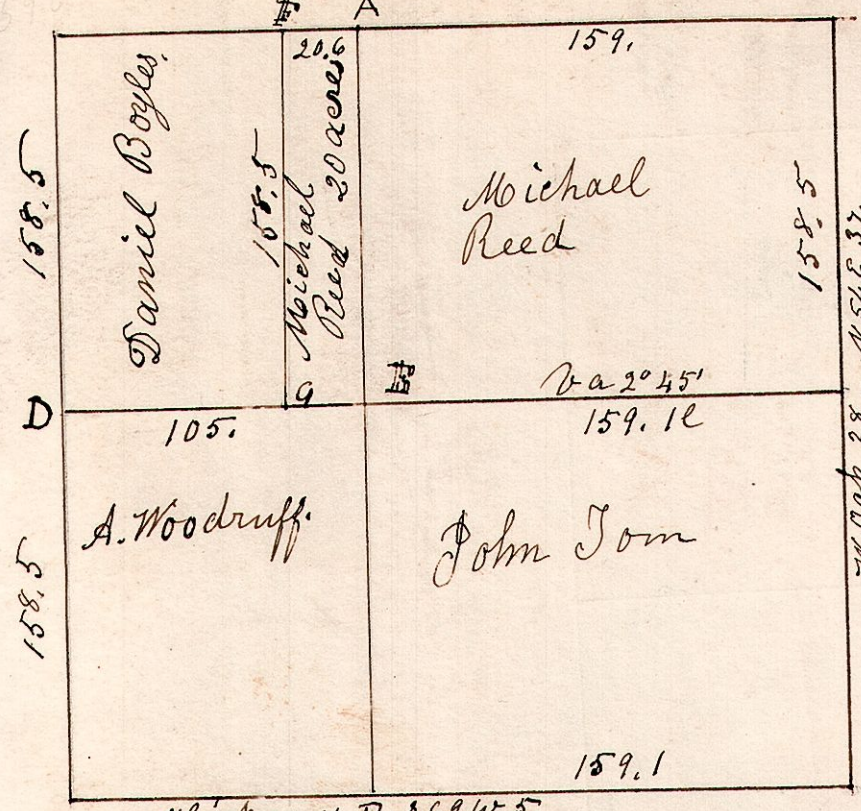 A
20.6
159.
Daniel Boyles.
158.5
158.5
Michael
Reed 20 acres
Michael
Reed
158.5
9
va 2° 45'
D
105.
159.1l
A. Woodruff.
John Tom
158.5
159.1